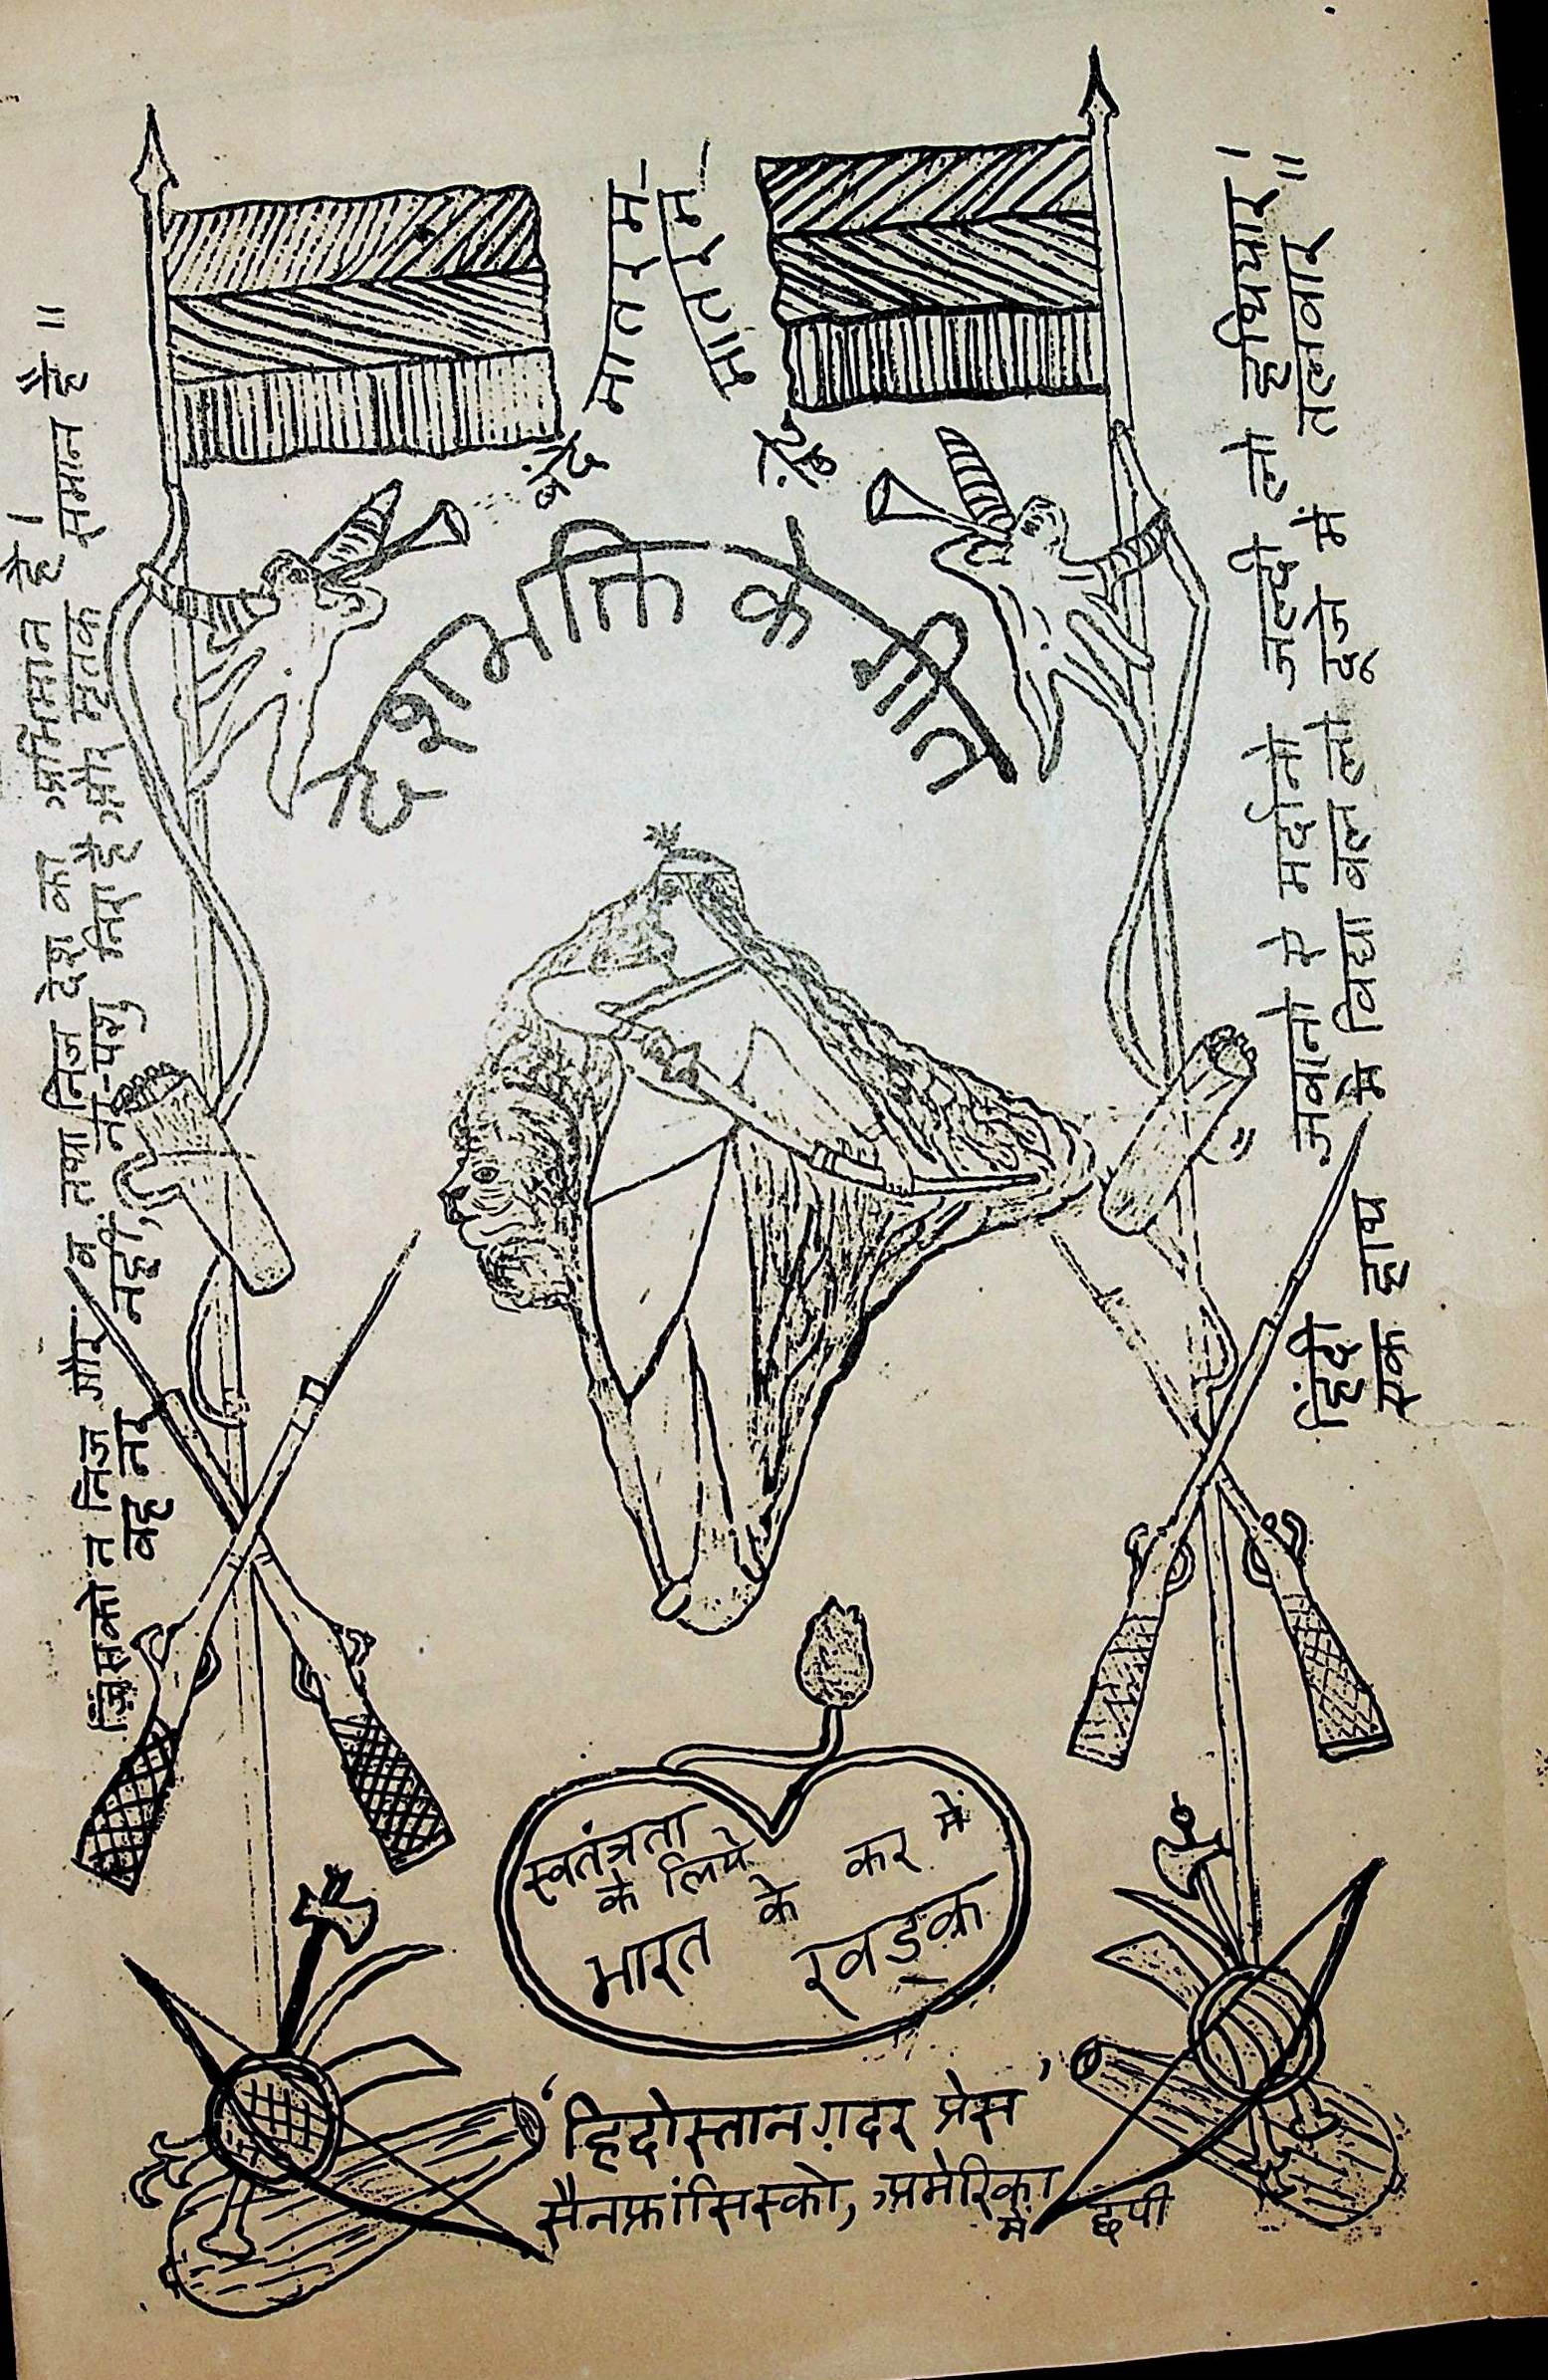 बंदे मातरम्
बंदे मातरम्
देशभक्ति के गीत
जिसको न निज गौरव तथा निज देश का अभिमान है ।
वह नर नहीं, नर-पशु निरा है और मृतक समान है ॥
हिंदी जवानो रे मर्दानो जल्दी लो हथियार ।
एक हाथ मे विद्या बल लो दूजे में तलवार ॥
स्वतंत्रता
के लिये
भारत के कर में
खड्क
'हिदोस्तान ग़दर प्रेस'
सैनफ्रांसिस्को, अमेरिका में छपी